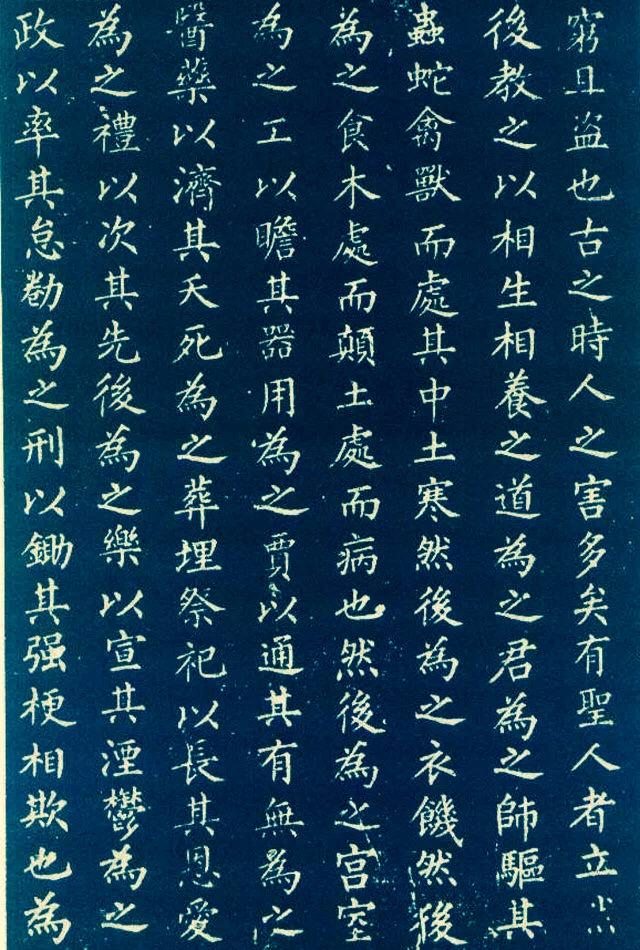 窮且盗也古之時人之害多矣有聖人者立
後教之以相生相養之道為之君為之師驅其
蟲蛇禽獸而處其中土寒然後為之衣饑然後
為之食木處而顛土處而病也然後為之宫室
為之工以瞻其器用為之賈以通其有無為之
醫藥以濟其夭死為之葬埋祭祀以長其恩愛
為之禮以次其先後為之樂以宣其湮鬱為之
政以率其怠勌為之刑以鋤其强梗相欺也為